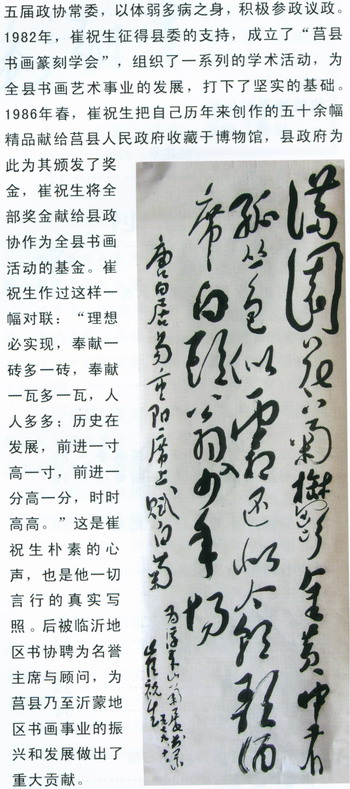 五届政协常委,以体弱多病之身,积极参政议政。
1982年,崔祝生征得县委的支持,成立了“莒县
书画篆刻学会”,组织了一系列的学术活动,为
全县书画艺术事业的发展,打下了坚实的基础。
1986年春,崔祝生把自己历年来创作的五十余幅
精品献给莒县人民政府收藏于博物馆,县政府为
此为其颁发了奖
金,崔祝生将全
部奖金献给县政
协作为全县书画
活动的基金。崔
祝生作过这样一
幅对联:“理想
必实现,奉献一
砖多一砖,奉献
一瓦多一瓦,人
人多多;历史在
发展,前进一寸
高一寸,前进一
分高一分,时时
高高。”这是崔
祝生朴素的心
声,也是他一切
言行的真实写
照。后被临沂地
区书协聘为名誉
主席与顾问,为
莒县乃至沂蒙地
区书画事业的振
兴和发展做出了
重大贡献。
满园花菊欝金黄中有
孤丛色似霜还似今朝歌酒
席白頭翁入少年场
唐白居易重阳席上赋白菊
为浮来山菊展
崔祝生